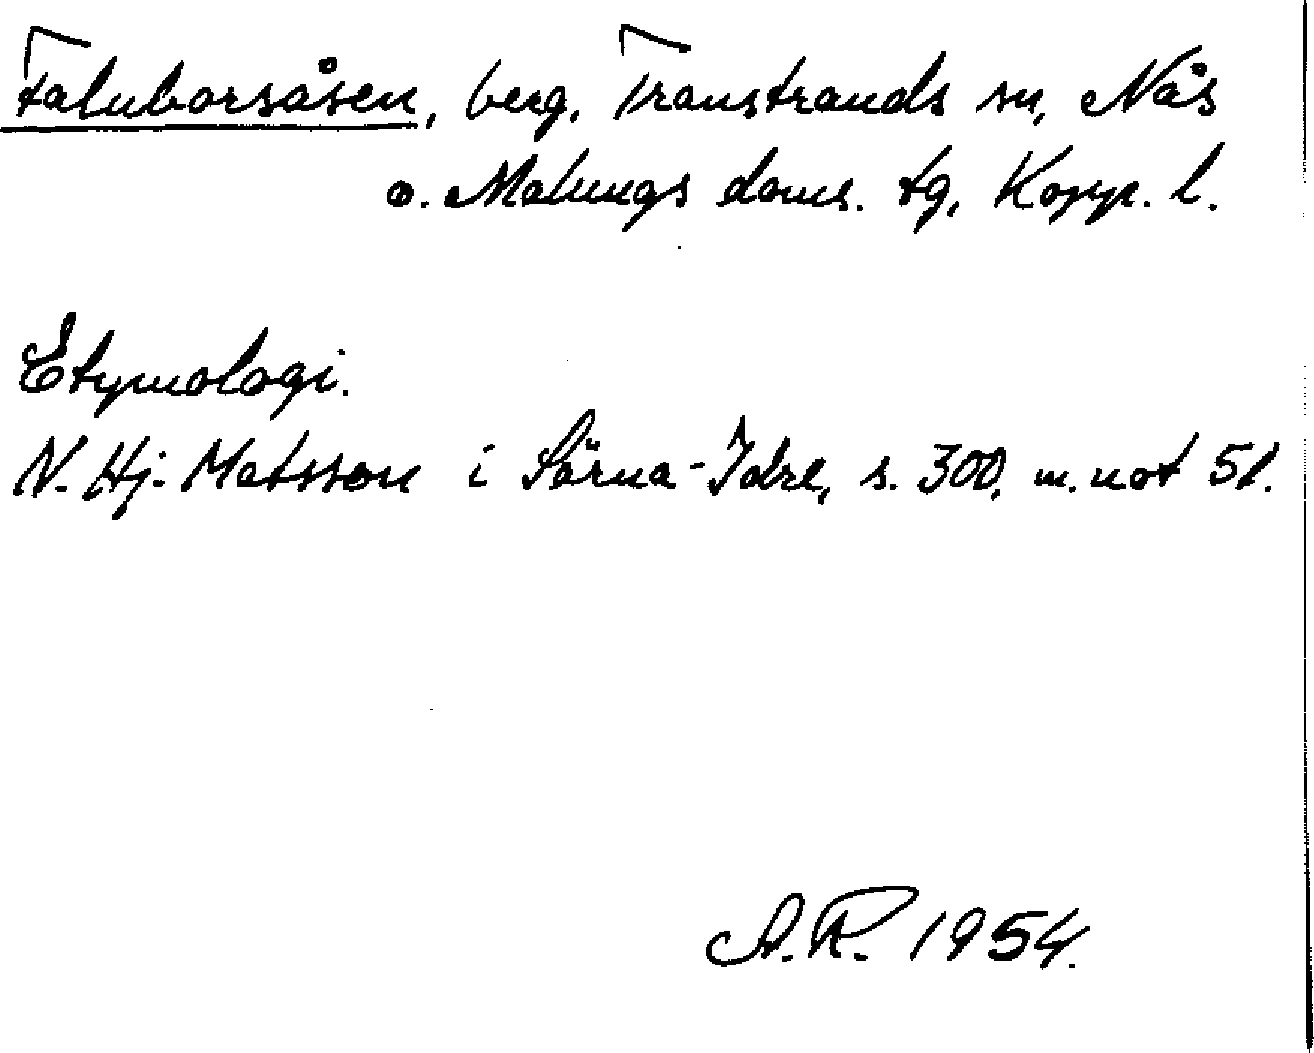 Faluborsåsen, berg, Transtrands sn, Nås
o. Malungs doms. tg, Kopp. l.
Etymologi.
N. Hj. Matsson i Särna-Idre, s. 300, m. not 51.
A.R. 1954.